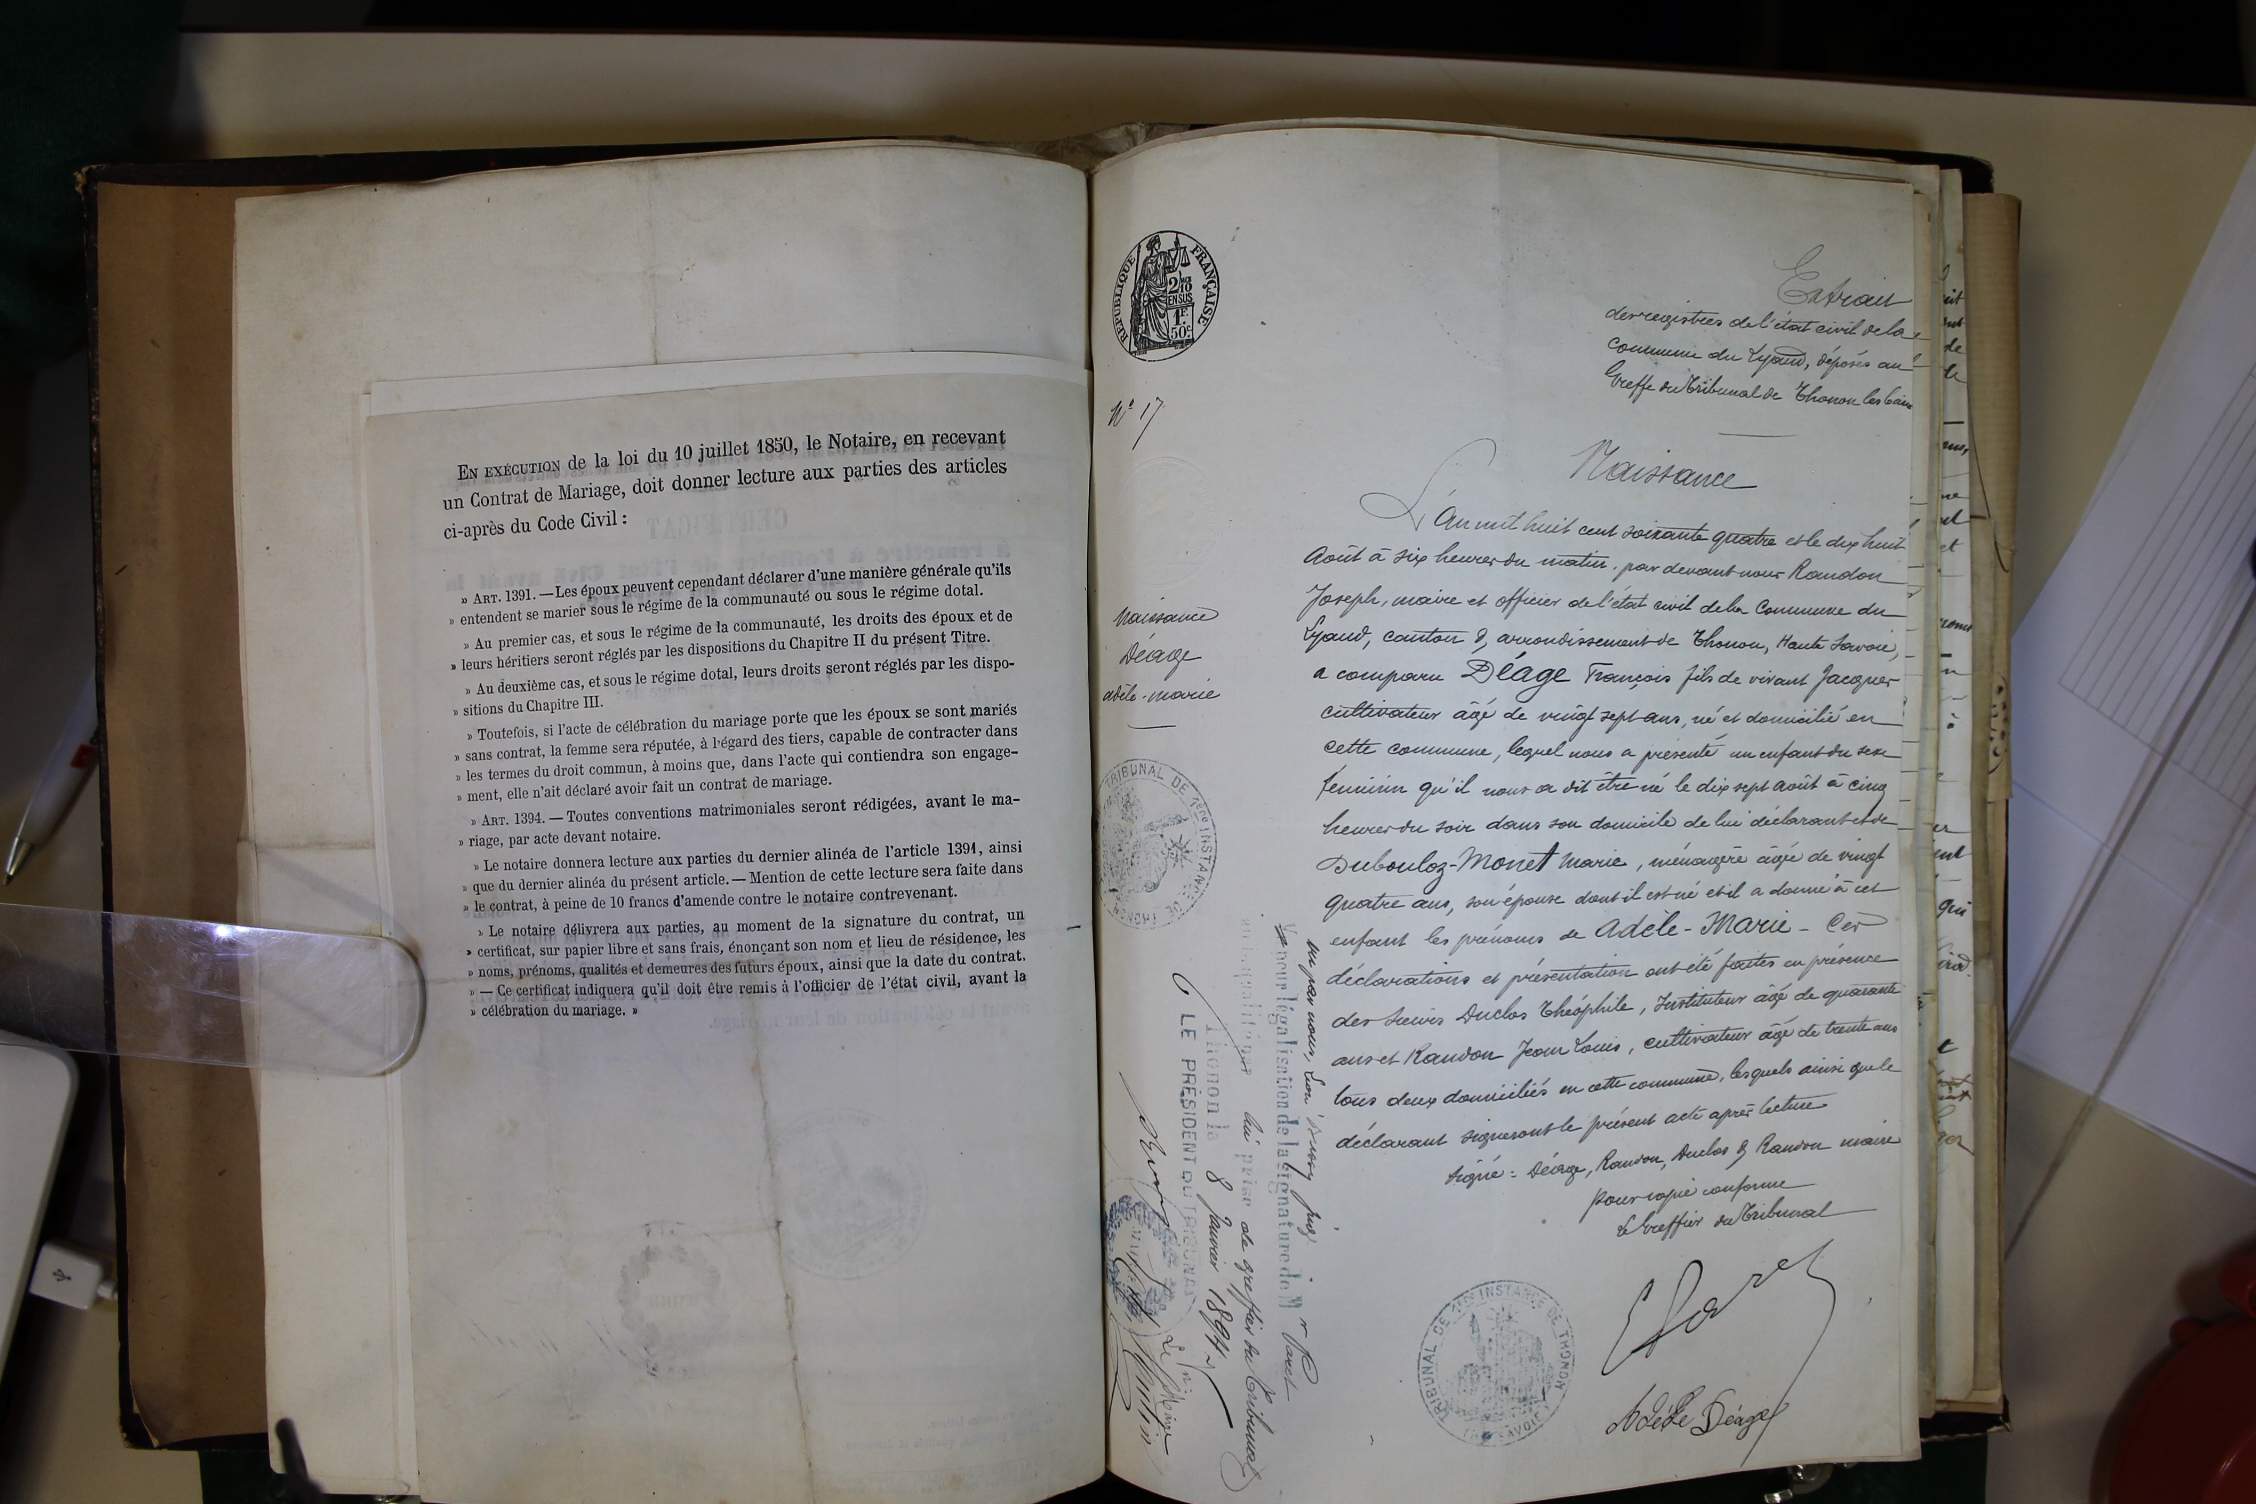 EN EXÉCUTION de la loi du 10 juillet 1850, le Notaire, en recevant
un Contrat de Mariage, doit donner lecture aux parties des articles
ci-après du Code Civil :
» ART. 1391. — Les époux peuvent cependant déclarer d'une manière générale qu'ils
» entendent se marier sous le régime de la communauté ou sous le régime dotal.
» Au premier cas, et sous le régime de la communauté, les droits des époux et de
» leurs héritiers seront réglés par les dispositions du Chapitre II du présent Titre.
» Au deuxième cas, et sous le régime dotal, leurs droits seront réglés par les dispo-
» sitions du Chapitre III.
» Toutefois, si l'acte de célébration du mariage porte que les époux se sont mariés
» sans contrat, la femme sera réputée, à l'égard des tiers, capable de contracter dans
» les termes du droit commun, à moins que, dans l'acte qui contiendra son engage-
» ment, elle n'ait déclaré avoir fait un contrat de mariage.
» ART. 1394. — Toutes conventions matrimoniales seront rédigées, avant le ma-
» riage, par acte devant notaire.
» Le notaire donnera lecture aux parties du dernier alinéa de l'article 1391, ainsi
» que du dernier alinéa du présent article. — Mention de cette lecture sera faite dans
» le contrat, à peine de 10 francs d'amende contre le notaire contrevenant.
» Le notaire délivrera aux parties, au moment de la signature du contrat, un
» certificat, sur papier libre et sans frais, énonçant son nom et lieu de résidence, les
» noms, prénoms, qualités et demeures des futurs époux, ainsi que la date du contrat.
» — Ce certificat indiquera qu'il doit être remis à l'officier de l'état civil, avant la
» célébration du mariage. »
RÉPUBLIQUE FRANÇAISE
2/10
EN SUS
1F
50c
Extrait
des registres de l'état civil de la
commune du Lyaud, déposés au
Greffe du Tribunal de Thonon les bains
N° 17
Naissance
Déage
adèle-marie
Naissance
L'An mil huit cent soixante quatre et le dix huit
Août à six heures du matin, par devant nous Randon
Joseph, maire et officier de l'état civil de la Commune du
Lyaud, canton & arrondissement de Thonon, Haute Savoie,
a comparu Déage François fils de vivant Jacques
cultivateur âgé de vingt sept ans, né et domicilié en
cette commune, lequel nous a présenté un enfant du sexe
féminin qu'il nous a dit être né le dix sept Août à cinq
heures du soir dans son domicile de lui déclarant et de
Dubouloz-Monet Marie, ménagère âgée de vingt
quatre ans, son épouse dont il est né et il a donné à cet
enfant les prénoms de Adèle-Marie - Ces
déclarations et présentation ont été faites en présence
des sieurs Duclos Théophile, Instituteur âgé de quarante
ans et Randon Jean Louis, cultivateur âgé de trente ans
tous deux domiciliés en cette commune, lesquels ainsi que le
déclarant signeront le présent acte après lecture
Signé : Déage, Randon, Duclos & Randon maire
Pour copie conforme
Le Greffier du Tribunal
Adèle Déage
TRIBUNAL DE 1ère INSTANCE DE THONON
TRIBUNAL DE 1ère INSTANCE DE THONON
Vu par nous,
pour légalisation de la signature de M r
de greffier du Tribunal
Thonon la 8 Janvier 1894
LE PRÉSIDENT DU TRIBUNAL